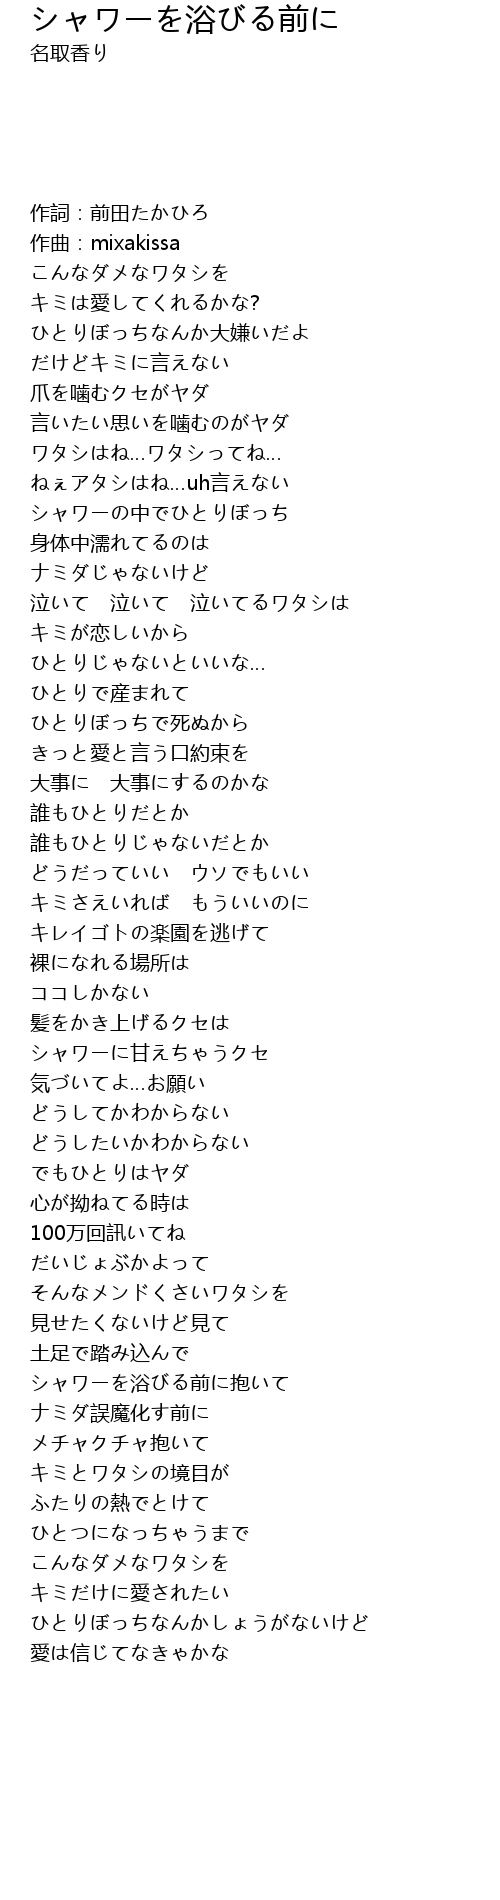 シャワーを浴びる前に
名取香り
作詞：前田たかひろ
作曲：mixakissa
こんなダメなワタシを
キミは愛してくれるかな?
ひとりぼっちなんか大嫌いだよ
だけどキミに言えない
爪を噛むクセがヤダ
言いたい思いを噛むのがヤダ
ワタシはね...ワタシってね...
ねぇアタシはね...uh言えない
シャワーの中でひとりぼっち
身体中濡れてるのは
ナミダじゃないけど
泣いて　泣いて　泣いてるワタシは
キミが恋しいから
ひとりじゃないといいな...
ひとりで産まれて
ひとりぼっちで死ぬから
きっと愛と言う口約束を
大事に　大事にするのかな
誰もひとりだとか
誰もひとりじゃないだとか
どうだっていい　ウソでもいい
キミさえいれば　もういいのに
キレイゴトの楽園を逃げて
裸になれる場所は
ココしかない
髪をかき上げるクセは
シャワーに甘えちゃうクセ
気づいてよ...お願い
どうしてかわからない
どうしたいかわからない
でもひとりはヤダ
心が拗ねてる時は
100万回訊いてね
だいじょぶかよって
そんなメンドくさいワタシを
見せたくないけど見て
土足で踏み込んで
シャワーを浴びる前に抱いて
ナミダ誤魔化す前に
メチャクチャ抱いて
キミとワタシの境目が
ふたりの熱でとけて
ひとつになっちゃうまで
こんなダメなワタシを
キミだけに愛されたい
ひとりぼっちなんかしょうがないけど
愛は信じてなきゃかな